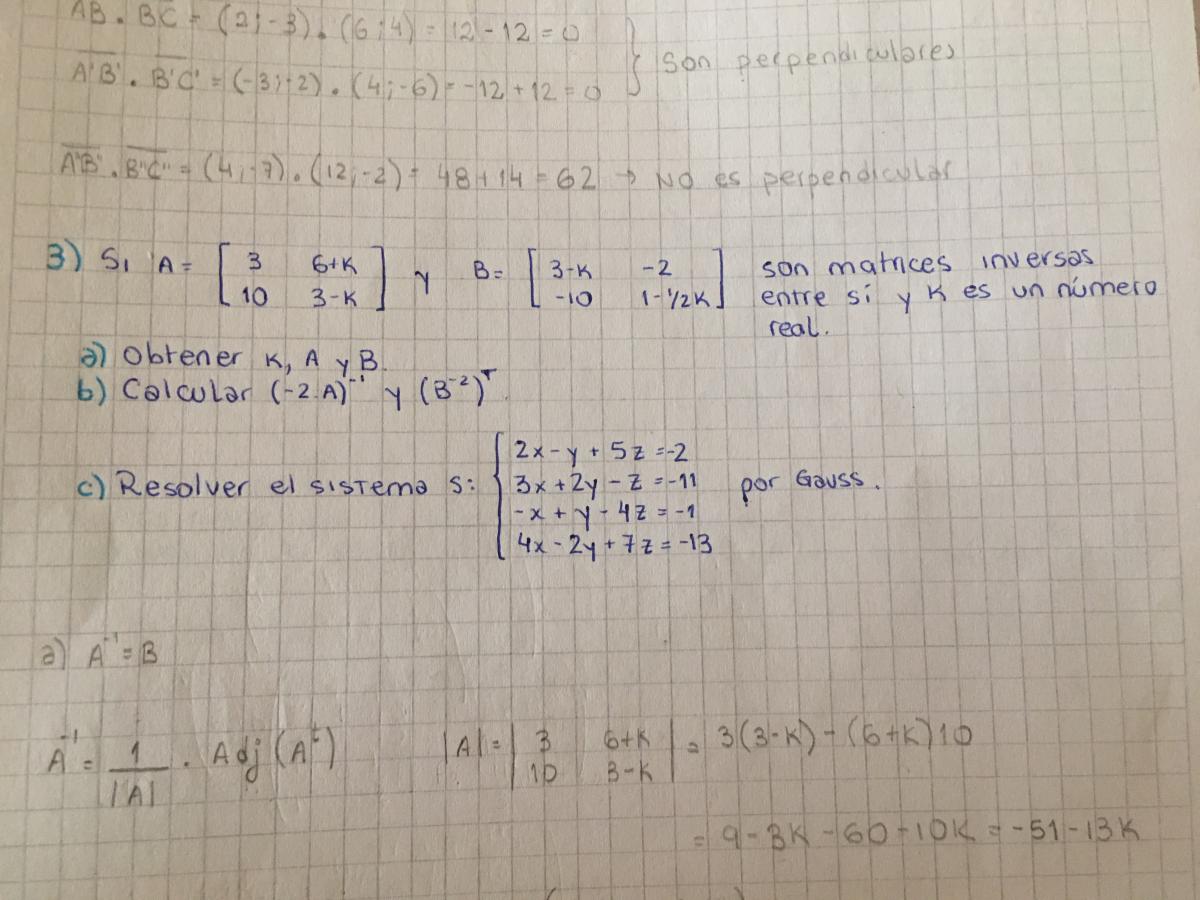 AB . BC = (2;-3) . (6;4) = 12-12=0
A'B' . B'C' = (-3;-2) . (4;-6) = -12+12=0 } son perpendiculares
A''B'' . B''C'' = (4;-7) . (12;-2) = 48+14=62 → NO es perpendicular
3) Si A= [ 3 6+K ; 10 3-K ] y B= [ 3-K -2 ; -10 1-1/2K ] son matrices inversas
entre sí y K es un número
real.
a) Obtener K, A y B.
b) Calcular (-2.A)⁻¹ y (B⁻²)ᵀ.
c) Resolver el sistema S: { 2x-y+5z=-2
3x+2y-z=-11 por Gauss.
-x+y-4z=-1
4x-2y+7z=-13
a) A⁻¹=B
A⁻¹= 1/|A| . Adj(Aᵗ) |A|= | 3 6+K ; 10 3-K | = 3(3-K)-(6+K)10
= 9-3K-60-10K=-51-13K